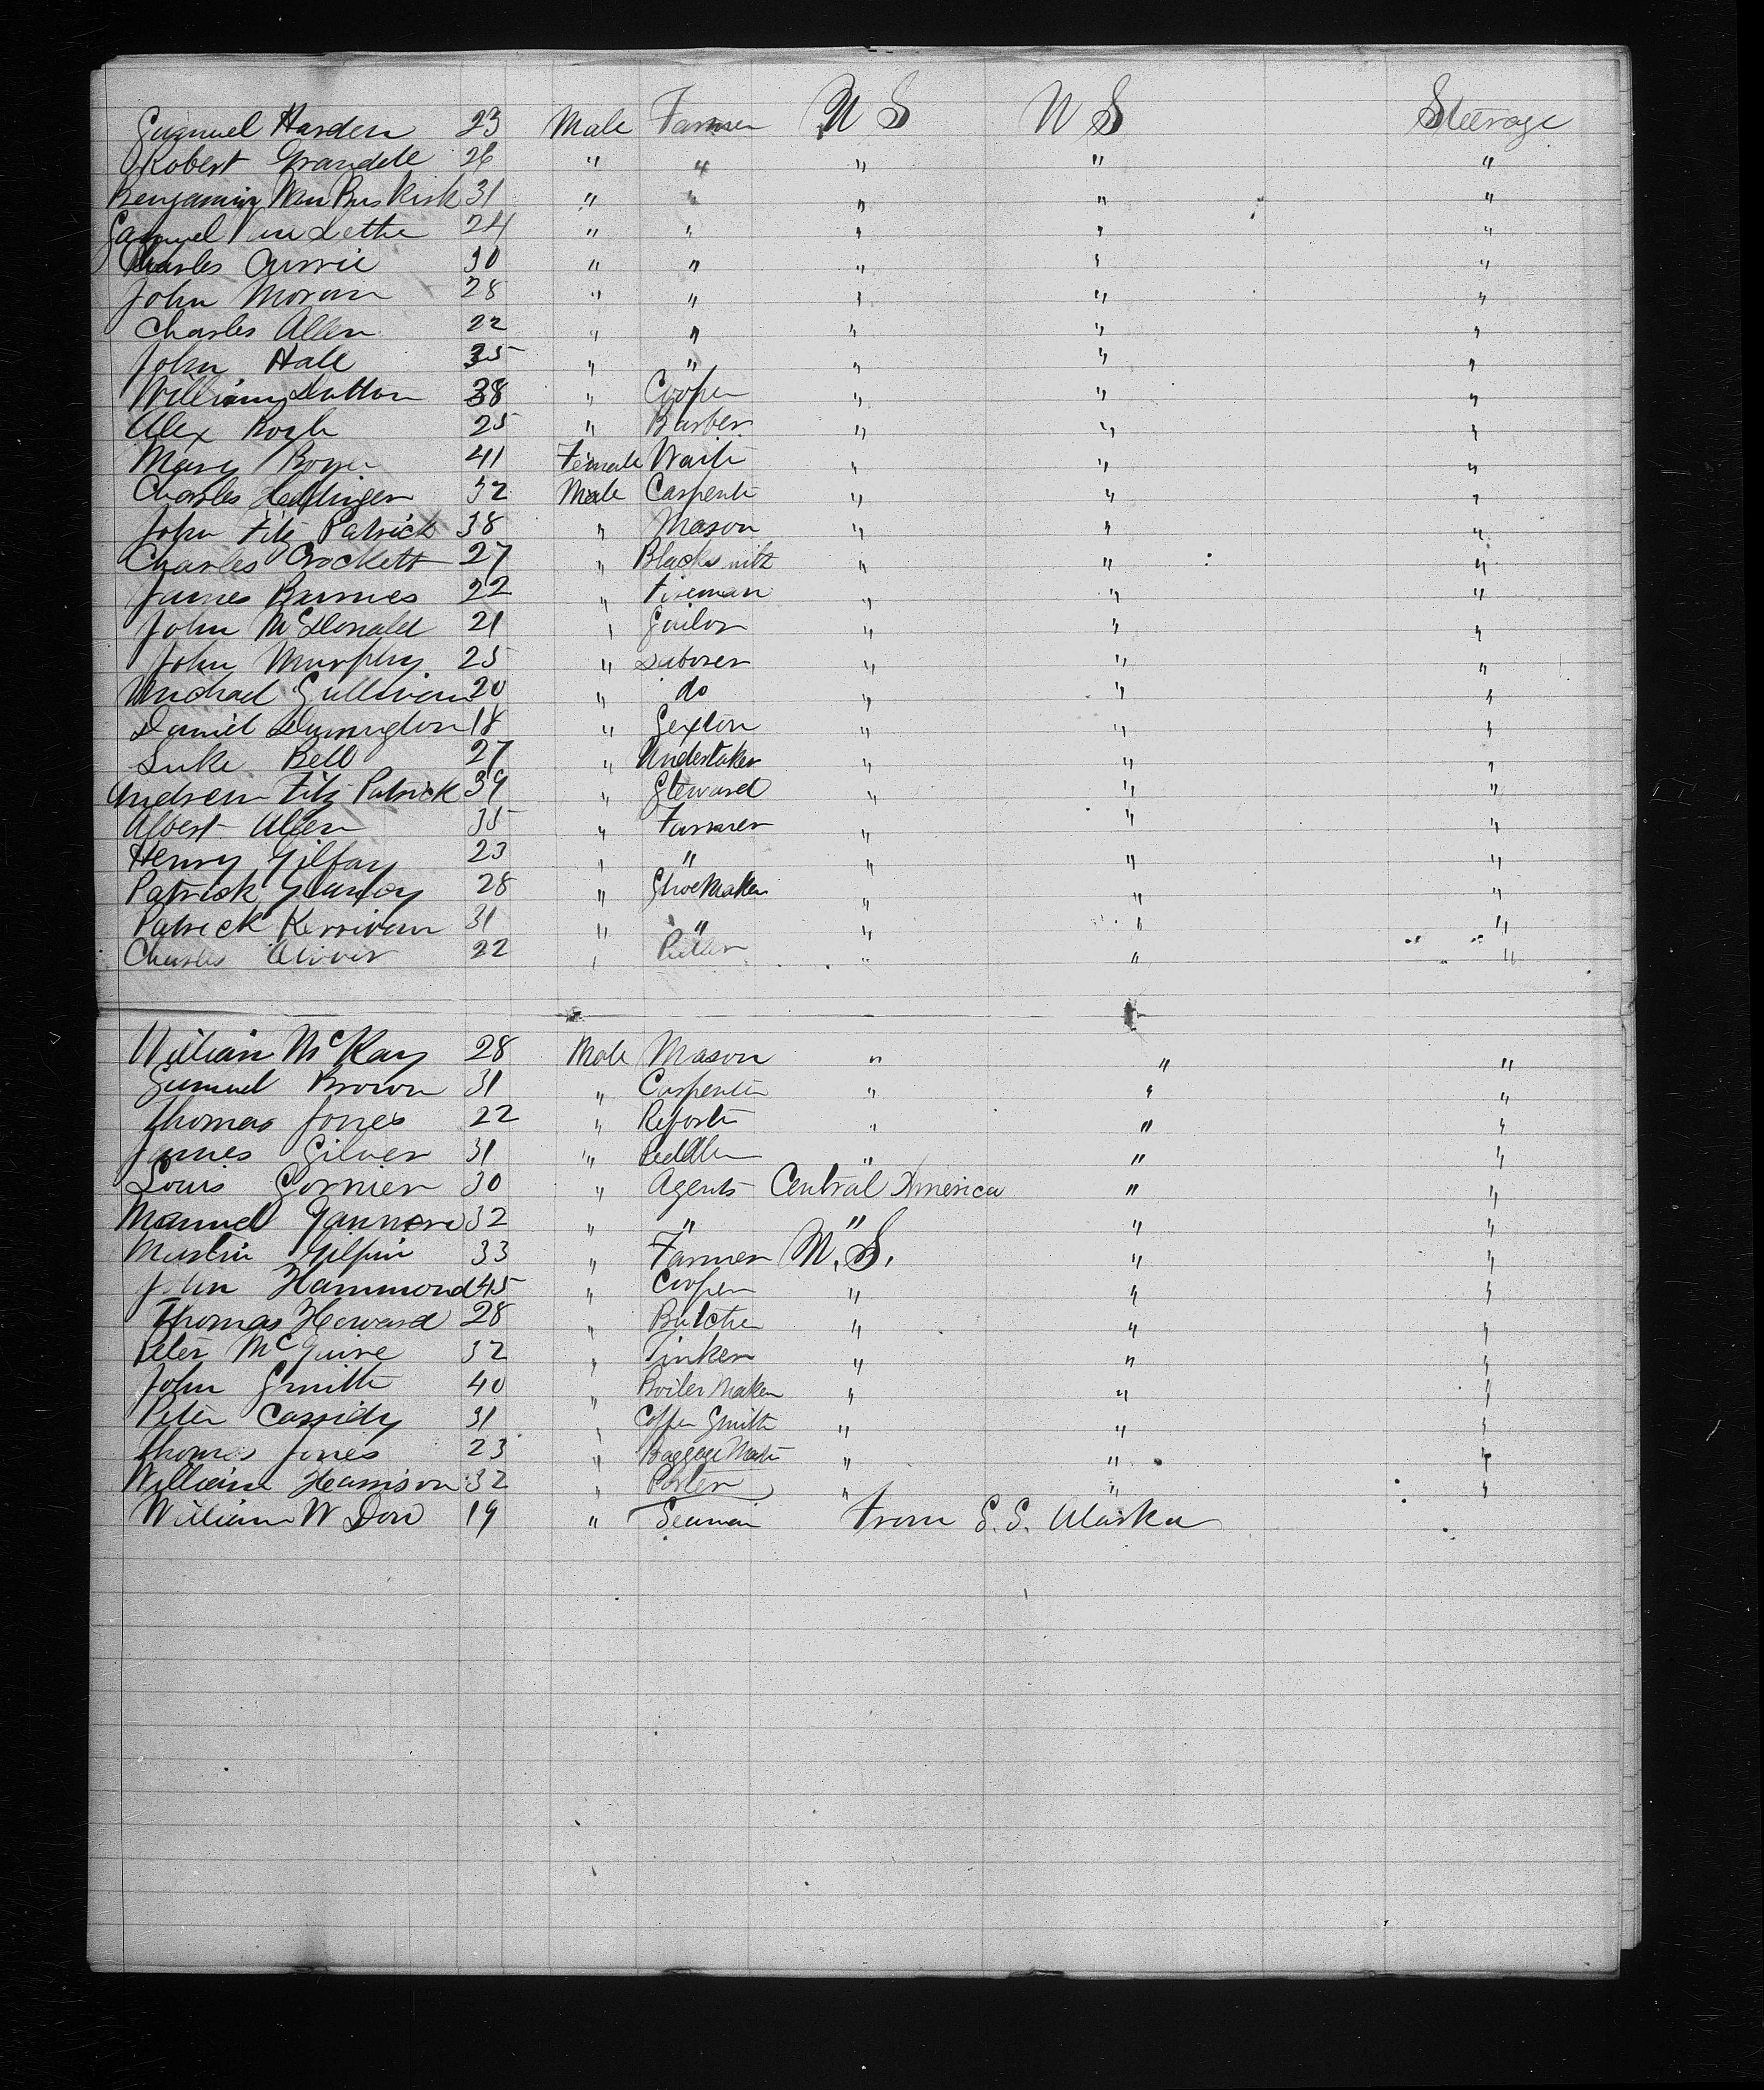 Samuel Harden 23 Male Farmer U S U S Steerage
Robert Grandell 26 " " " " "
Benjamin Van Buskirk 31 " " " " "
Samuel 24 " " " " "
Charles Currie 30 " " " " "
John Moran 28 " " " " "
Charles Allen 22 " " " " "
John Hall 35 " " " " "
William Dutton 38 " Cooper " " "
Alex 25 " Barber " " "
Mary 41 Female Wait " " "
Charles 32 Male Carpent " " "
John Fitz Patrick 38 " Mason " " "
Charles Crockett 27 " Blacksmith " " "
James Barnes 22 " Fireman " " "
John McDonald 21 " Sailor " " "
John Murphy 25 " Laborer " " "
Michael Sullivan 20 " do " " "
Daniel 18 " Sexton " " "
Luke Bell 27 " Undertaker " " "
Andrew Fitz Patrick 39 " Steward " " "
Albert Allen 35 " Farmer " " "
Henry Gilfay 23 " " " " "
Patrick 28 " ShoeMaker " " "
Patrick Kerrivan 31 " " " " "
Charles Oliver 22 " " " "
William McKay 28 Male Mason " " "
Samuel Brown 31 " Carpenter " " "
Thomas Jones 22 " Reporter " " "
James Silver 31 " Peddler " " "
Louis Gornier 30 " Agents Central America " "
Manuel 32 " " " " "
Martin Gilpin 33 " Farmer U.S. " "
John Hammond 45 " Cooper " " "
Thomas Howard 28 " Butcher " " "
Peter McGuire 32 " Tinker " " "
John Smith 40 " Boiler Maker " " "
Peter Cassidy 31 " Copper Smith " " "
Thomas Jones 23 " Baggage Mast " " "
William Harrison 32 " Porter " " "
William W Dow 19 " Seaman from S.S. Alaska